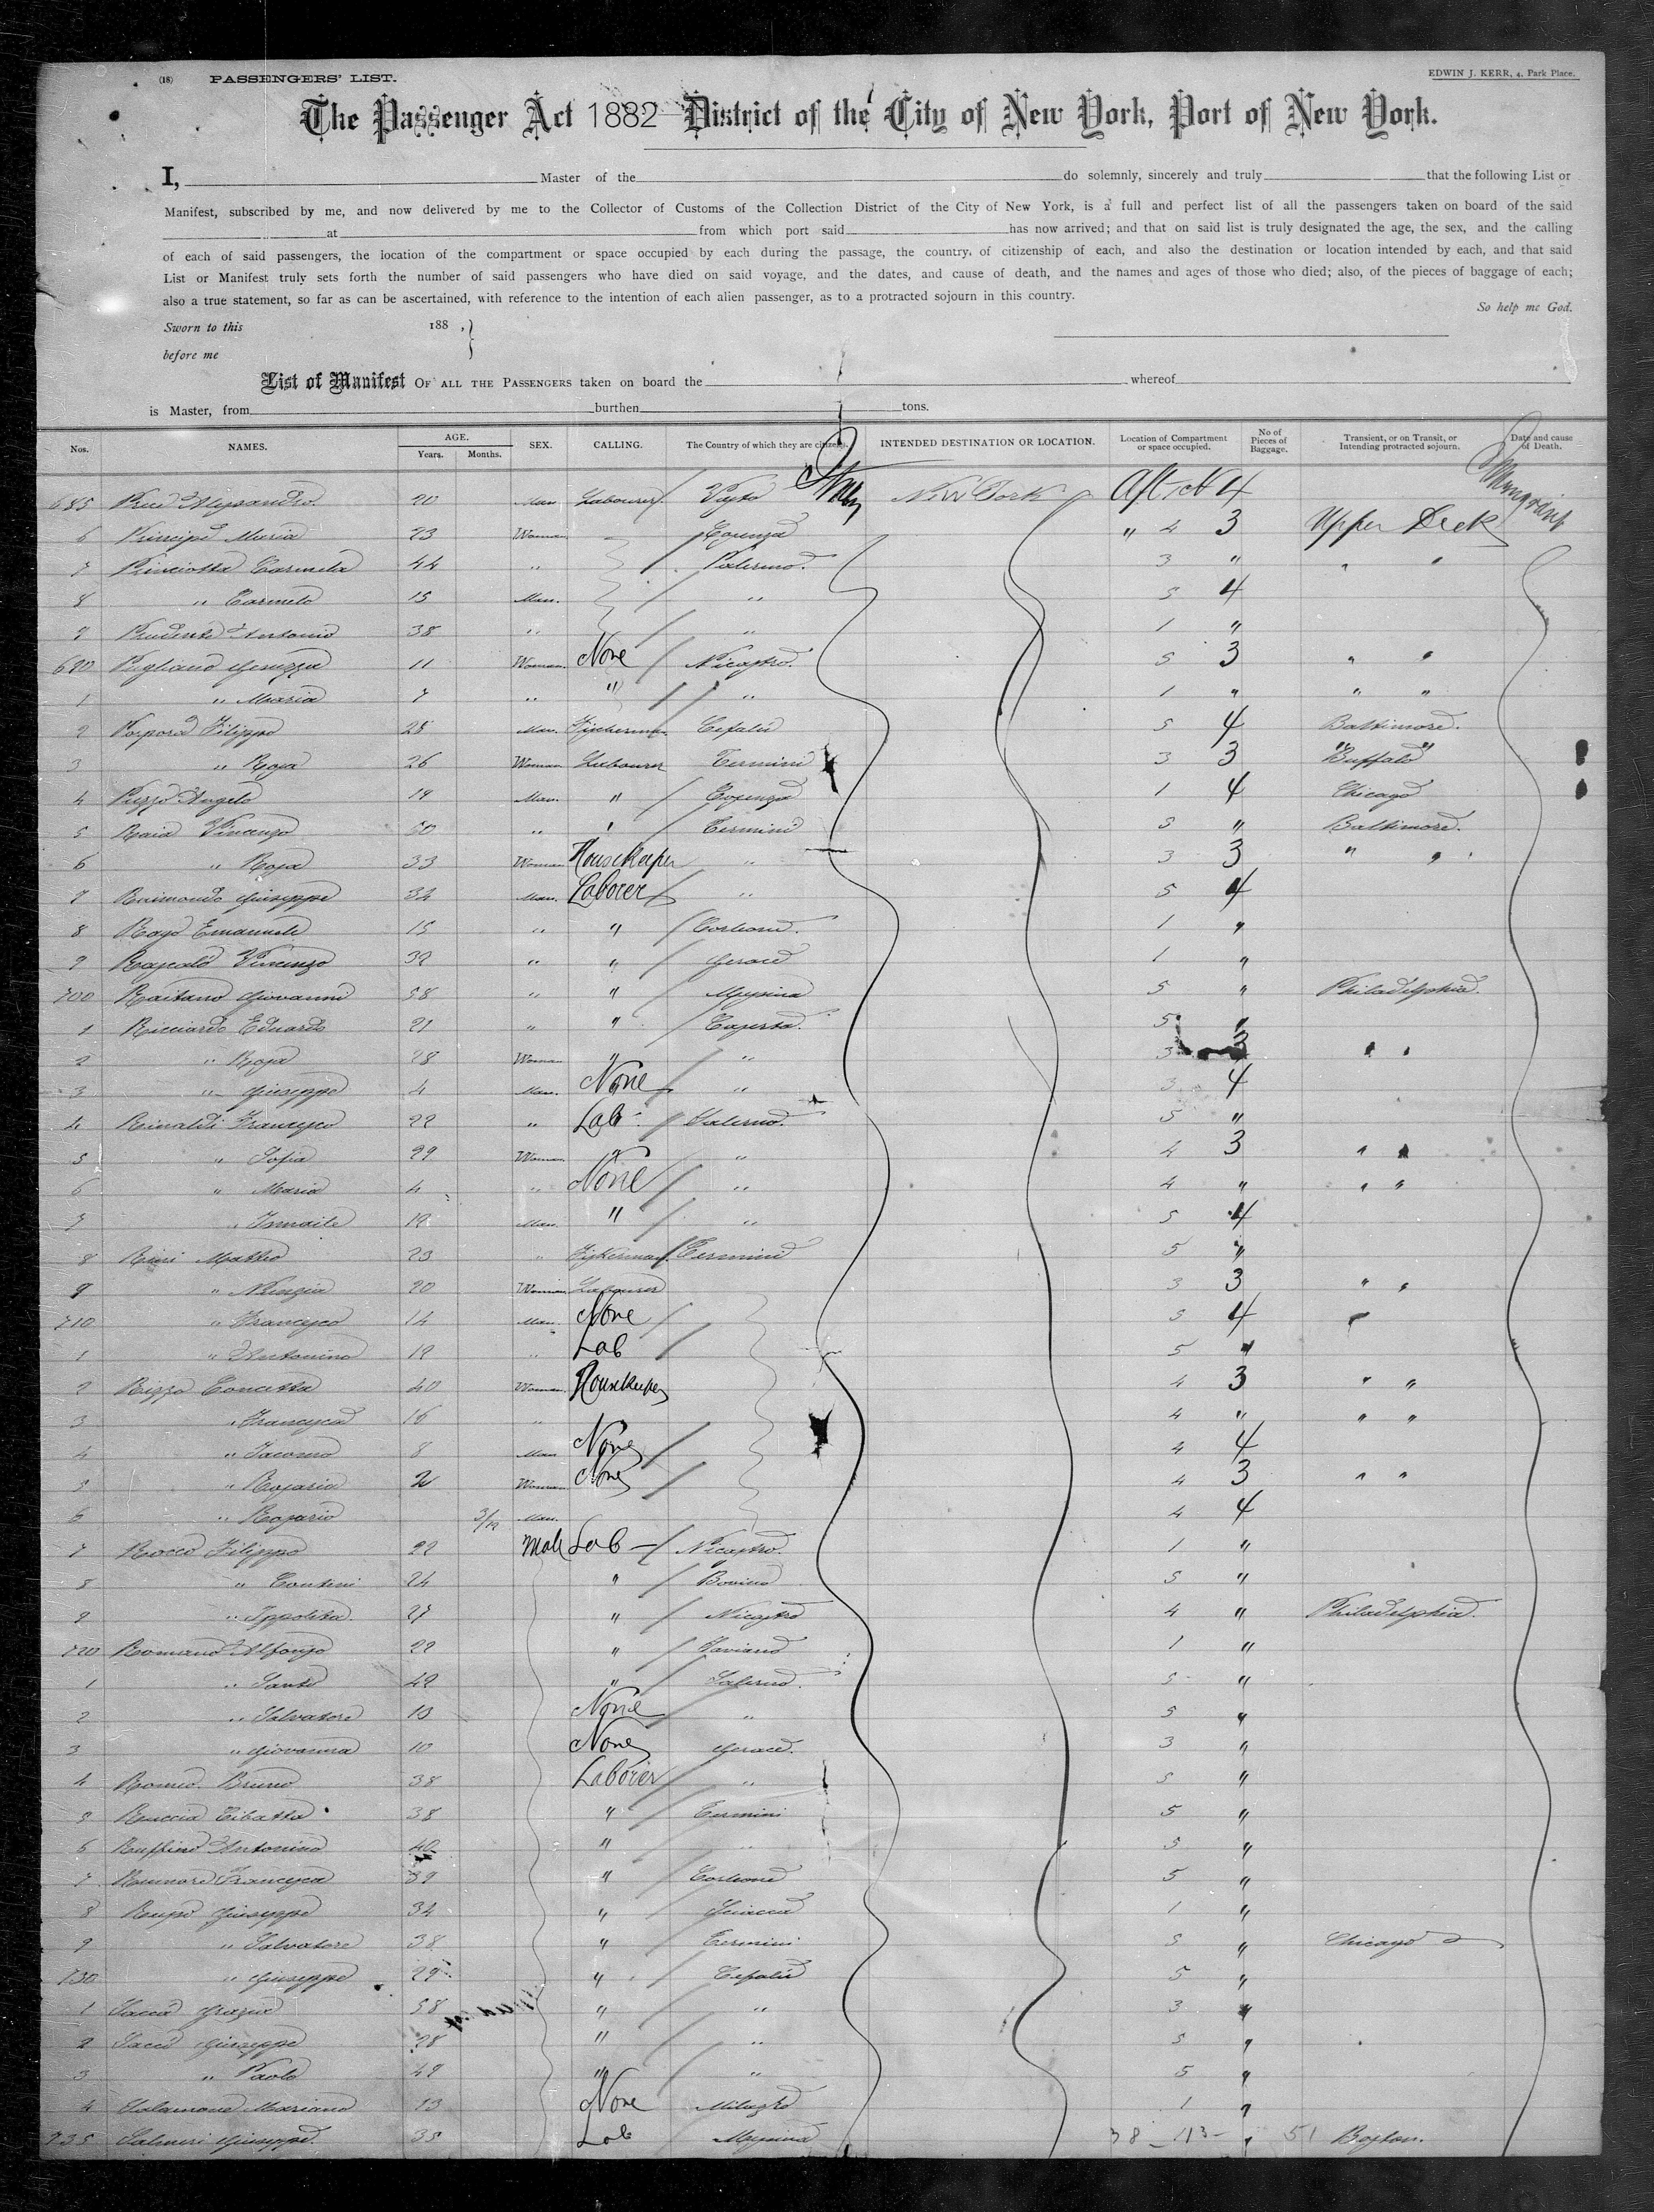 (18) PASSENGERS' LIST. EDWIN J. KERR, 4, Park Place.
The Passenger Act 1882 District of the City of New York, Port of New York.
I, Master of the do solemnly, sincerely and truly that the following List or
Manifest, subscribed by me, and now delivered by me to the Collector of Customs of the Collection District of the City of New York, is a full and perfect list of all the passengers taken on board of the said
at from which port said has now arrived; and that on said list is truly designated the age, the sex, and the calling
of each of said passengers, the location of the compartment or space occupied by each during the passage, the country of citizenship of each, and also the destination or location intended by each, and that said
List or Manifest truly sets forth the number of said passengers who have died on said voyage, and the dates, and cause of death, and the names and ages of those who died; also, of the pieces of baggage of each;
also a true statement, so far as can be ascertained, with reference to the intention of each alien passenger, as to a protracted sojourn in this country.
So help me God.
Sworn to this 188 ,}
before me
List of Manifest OF ALL THE PASSENGERS taken on board the whereof
is Master, from burthen tons.
Nos. NAMES. AGE. Years. Months. SEX. CALLING. The Country of which they are citizens. INTENDED DESTINATION OR LOCATION. Location of Compartment or space occupied. No of Pieces of Baggage. Transient, or on Transit, or Intending protracted sojourn. Date and cause of Death.
685 Alessandro 20 Man Labourer Italy New York Aft N 4
6 Maria 23 Woman Cosenza " 4 3 Upper Deck
7 Carmela 44 " Palermo. 3 " " "
8 " Carmelo 15 Man. " 5 4
9 Antonio 38 " " 1 "
690 Pugliano 11 Woman. None Nicastro. 5 3 " "
1 " Maria 7 " " " 1 " " "
2 Filippo 28 Man. Fisherman Cefalù 5 4 Baltimore.
3 " Rosa 26 Woman Labourer Termini 3 3 Buffalo
4 Angelo 19 Man. " Cosenza 1 4 Chicago
5 Raia Vincenzo 50 " " Termini 5 " Baltimore.
6 " Rosa 33 Woman Housekeeper " 3 3 " "
7 Raimondo Giuseppe 34 Man. Laborer " 5 4
8 Emanuele 15 " " Corleone. 1 "
9 Vincenzo 32 " " Gerace 1 "
700 Raitano Giovanni 58 " " Messina 5 " Philadelphia.
1 Ricciardo Eduardo 21 " " Caserta. 5 "
2 " Rosa 28 Woman " " 3 3 " "
3 " Giuseppe 4 Man. None " 3 4
4 Rinaldi Francesco 22 " Lab Salerno. 5 "
5 " Sofia 29 Woman " " 4 3 " "
6 " Maria 4 " None " 4 " " "
7 " Ismaile 19 Man. " " 5 4
8 Matteo 23 " Fisherman. Termini 5 "
9 " Nunzia 20 Woman Labourer 3 3 " "
710 " Francesco 14 Man. None 5 4 "
1 " Antonino 19 " Lab 5 "
2 Rizzo Concetta 40 Woman. Housekeeper 4 3 " "
3 " Francesca 16 " 4 " " "
4 " Giacomo 8 Man None 4 4
5 " Rosaria 2 Woman None 4 3 " "
6 " Rosario 3/12 Man. 4 4
7 Rocco Filippo 22 Male Lab Nicastro. 1 "
8 " 24 " Bovino 5 "
9 " Ippolita. 27 " Nicastro 4 " Philadelphia.
720 Romano Alfonso 22 " 1 "
1 " Santo 42 " Salerno. 5 "
2 " Salvatore 10 None " 5 "
3 " Giovanna 10 None Gerace. 3 "
4 Romeo Bruno 38 Laborer " 5 "
5 38 " Termini 5 "
6 Ruffino Antonino 40 " " 5 "
7 Francesca 39 " Corleone 5 "
8 Giuseppe 34 " Sciacca 1 "
9 " Salvatore 38 " Termini 5 " Chicago
730 " Giuseppe 29 " Cefalù 5 "
1 Sacca Grazia 58 " " 3 "
2 Giuseppe 28 " " 5 "
3 " Paolo 42 " " 5 "
4 Salamone Mariano 13 None 1 "
735 Salmeri Giuseppe. 35 Lab Messina 38 - 113 - " 51 Boston.